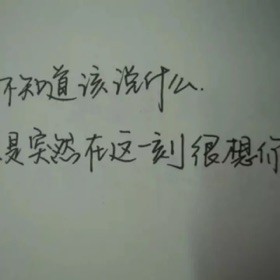 不知道该说什么.
是突然在这一刻很想你